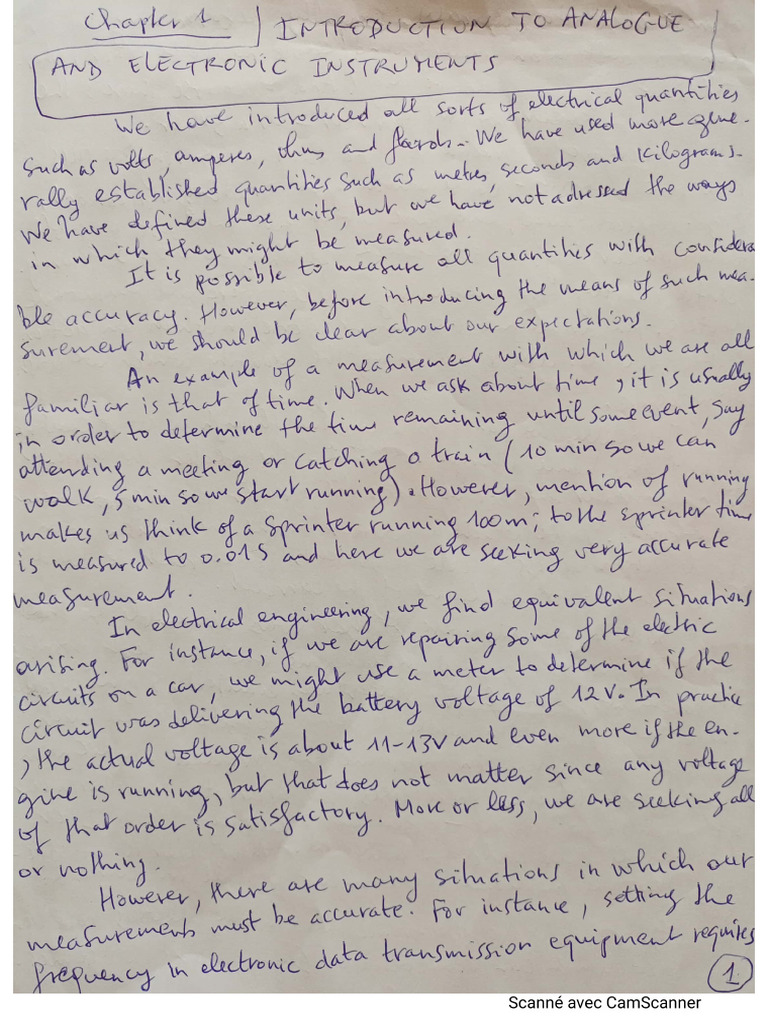 Chapter 1 INTRODUCTION TO ANALOGUE
AND ELECTRONIC INSTRUMENTS
We have introduced all sorts of electrical quantities
such as volts, amperes, ohms and farads. We have used more gene-
rally established quantities such as metres, seconds and kilograms.
We have defined these units, but we have not adressed the ways
in which they might be measured.
It is possible to measure all quantities with considera
ble accuracy. However, before introducing the means of such mea-
surement, we should be clear about our expectations.
An example of a measurement with which we are all
familiar is that of time. When we ask about time, it is usually
in order to determine the time remaining until some event, say
attending a meeting or catching a train (10 min so we can
walk, 5 min so we start running). However, mention of running
makes us think of a sprinter running 100m; to the sprinter time
is measured to 0.01s and here we are seeking very accurate
measurement.
In electrical engineering, we find equivalent situations
arising. For instance, if we are repairing some of the electric
circuits on a car, we might use a meter to determine if the
circuit was delivering the battery voltage of 12V. In practice
, the actual voltage is about 11-13V and even more if the en-
gine is running, but that does not matter since any voltage
of that order is satisfactory. More or less, we are seeking all
or nothing.
However, there are many situations in which our
measurements must be accurate. For instance, setting the
frequency in electronic data transmission equipment requires
1
Scanné avec CamScanner